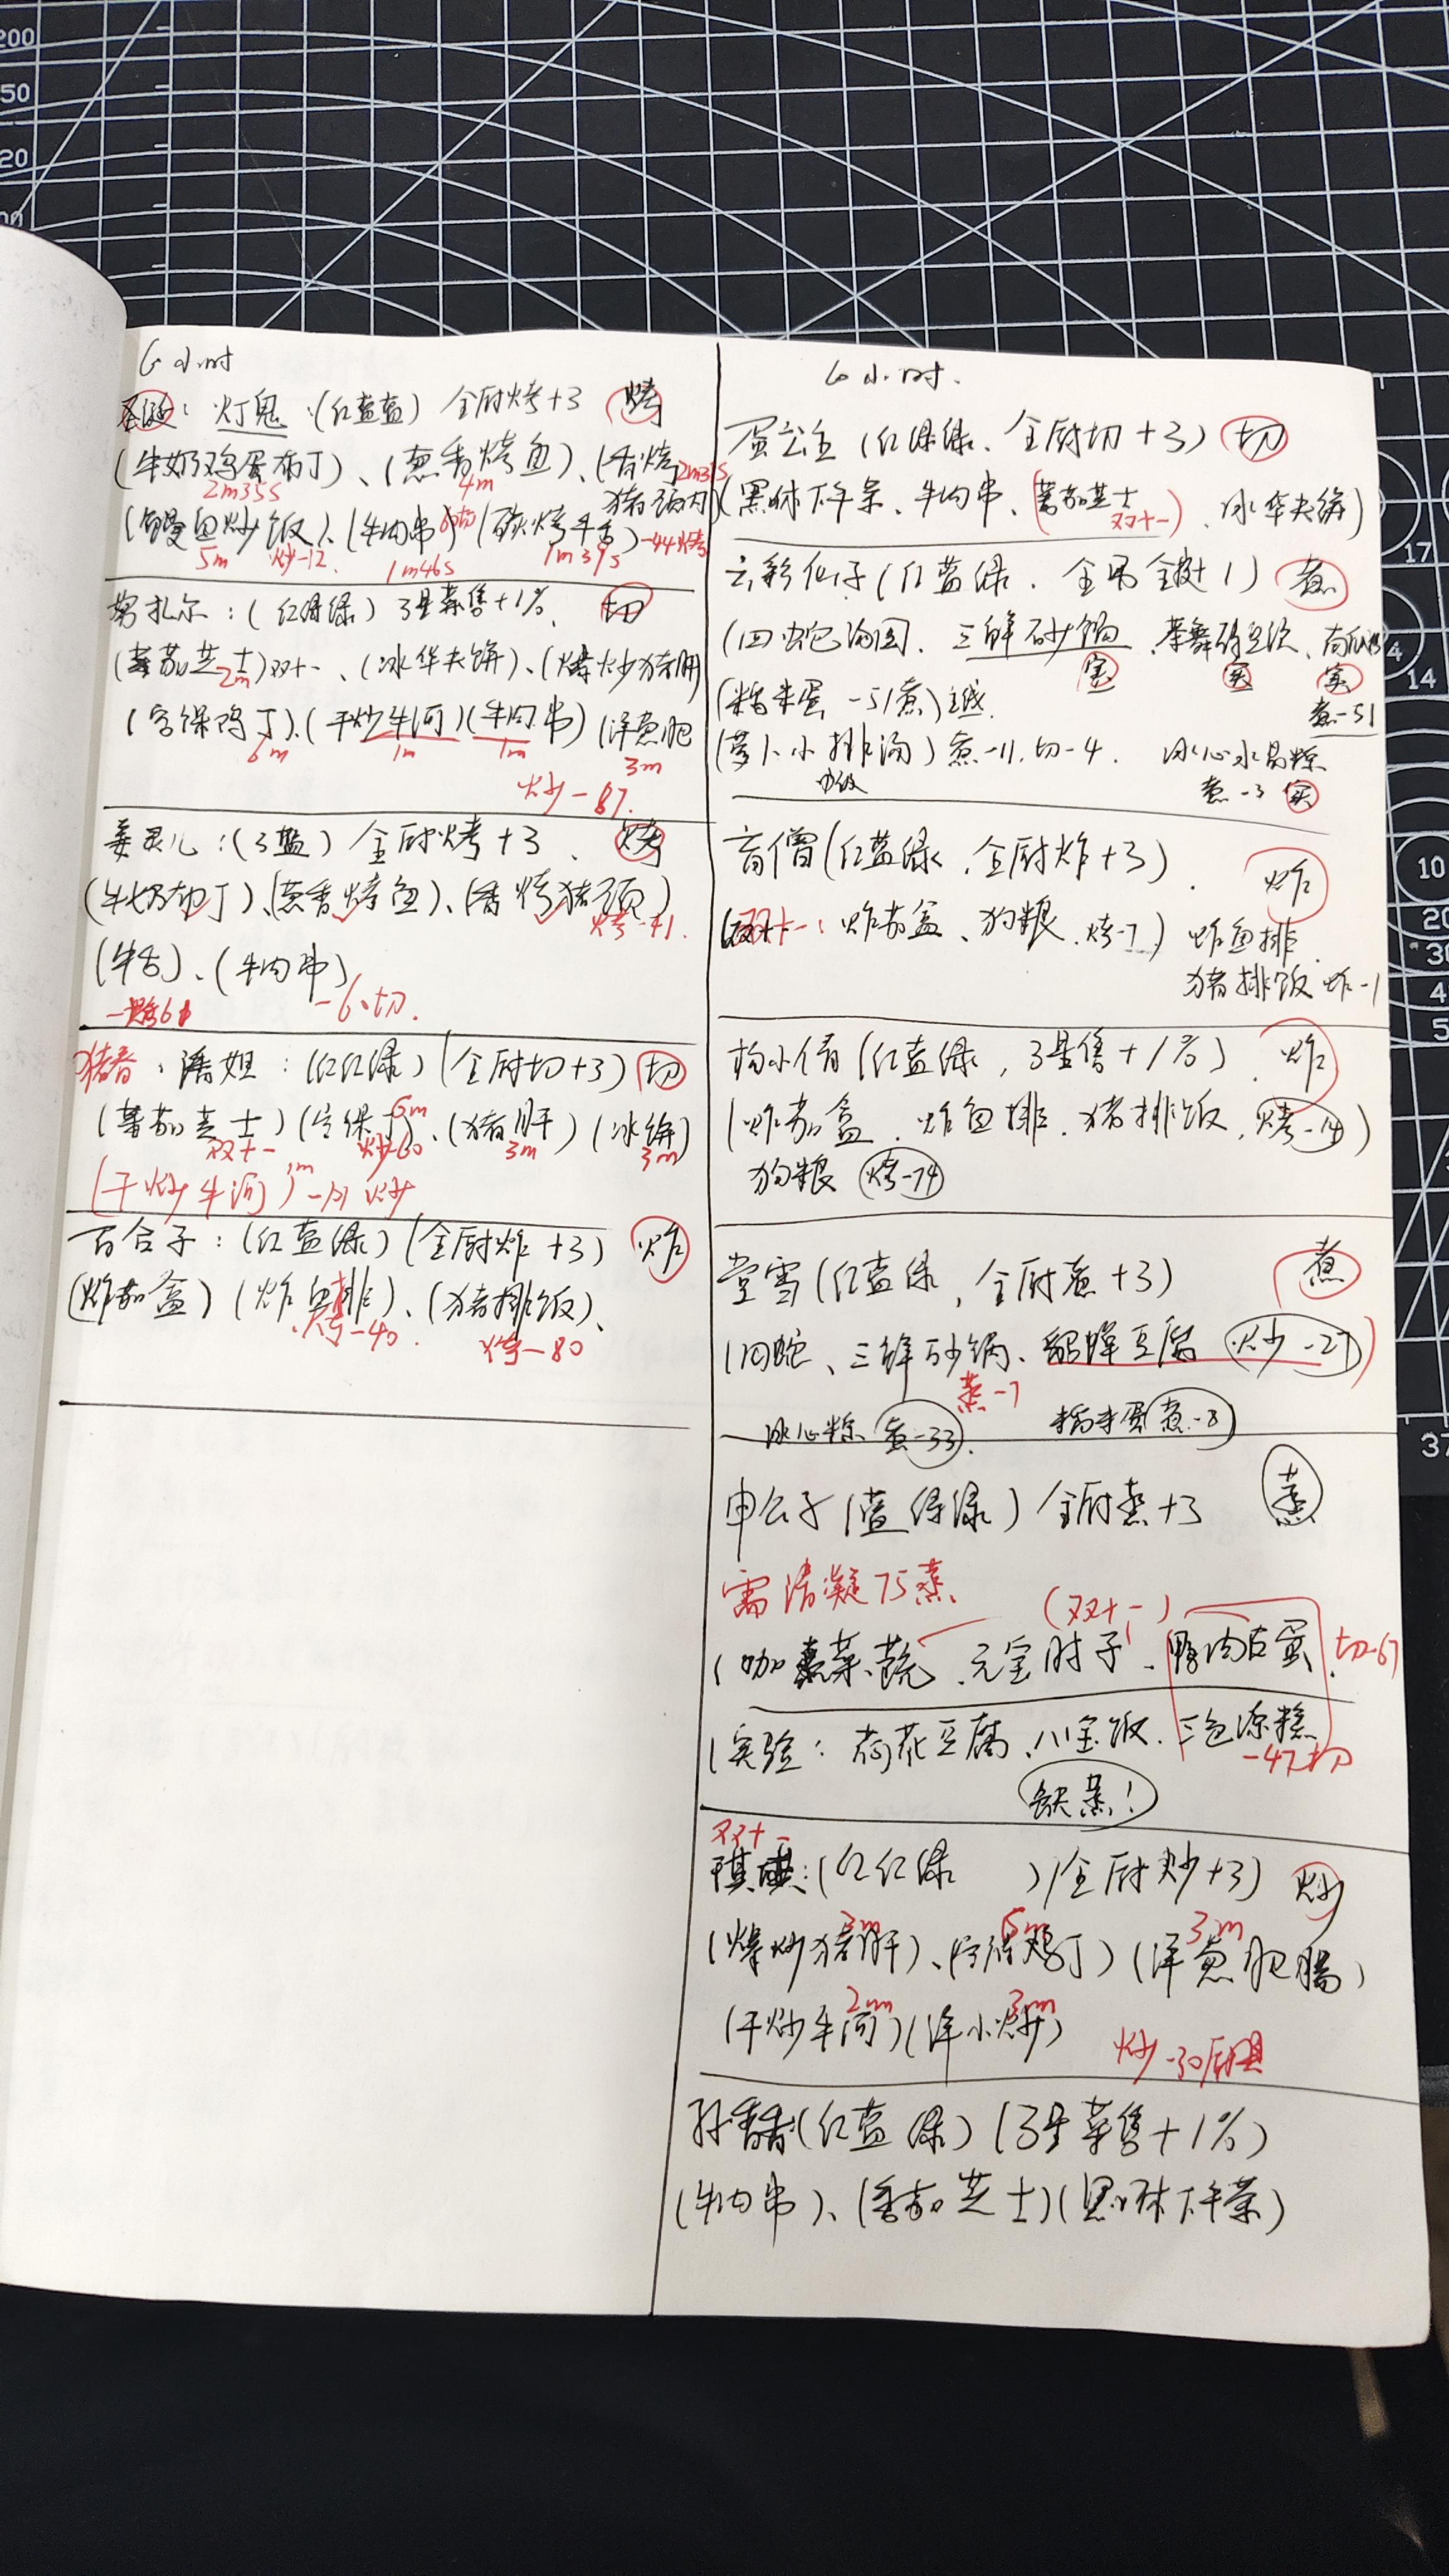 6小时
圣诞：灯鬼（红蓝蓝）全厨烤+3 烤
（牛奶鸡蛋布丁）、（葱香烤鱼）、（香烤猪颈肉）
2m35s 4m 2m35s
（鳗鱼炒饭）、（牛肉串）（碳烤牛舌）-44烤
5m 炒-12. 1m46s 6切 1m39s
努扎尔：（红绿绿）3星菜售+1%、 切
（蕃茄芝士）双十一、（冰华夫饼）、（爆炒猪肝）
2m
（宫保鸡丁）、（干炒牛河）（牛肉串）（洋葱肥
6m 1m 1m 3m
炒-87.
姜灵儿：（3蓝）全厨烤+3、 烤
（牛奶布丁）、（葱香烤鱼）、（香烤猪颈）
烤-41.
（牛舌）、（牛肉串）
-烤61 -6切.
、潘姐：（红红绿）（全厨切+3） 切
（蕃茄芝士）（宫保丁）、（猪肝）（冰饼）
双十一 6m 炒60 3m 3m
（干炒牛河） 炒
1m
百合子：（红蓝绿）（全厨炸+3） 炸
（炸茄盒）（炸鱼排）、（猪排饭）、
烤-40. 烤-80
6小时.
蛋公主（红绿绿、全厨切+3） 切
（黑椒牛柔、牛肉串、（蕃茄芝士双十一）、冰华夫饼）
云彩仙子（红蓝绿. +1） 煮
（四蛇汤圆、三鲜砂锅、
实 实 实
煮-51
（糟米蛋 -51煮）
（萝卜小排汤）煮-11.切-4. 冰心水晶粽
中级 煮-3 实
盲僧（红蓝绿、全厨炸+3）. 炸
（双十一：炸茄盒、狗粮、烤-7） 炸鱼排、
猪排饭 炸-1
杨小倩（红蓝绿，3星售+1%）、 炸
（炸茄盒、炸鱼排、猪排饭、烤-14）
狗粮 烤-74
堂雪（红蓝绿，全厨煮+3） 煮
（四蛇、三鲜砂锅、貂蝉豆腐 炒-27）
蒸-7
冰心粽 煮-33. 糟米蛋 煮-8
申公子（蓝绿绿）全厨蒸+3 蒸
需清凝75蒸、
（双十一）
（咖喱菜蔬、元宝肘子、鸭肉石蛋、切-67
（实验：荷花豆腐、八宝饭、三色凉糕
-47切
缺蒸！
双十一
琪琪：（红红绿 ）（全厨炒+3） 炒
3m 6m 3m
（爆炒猪肝）、（宫保鸡丁）（洋葱肥肠）
2m 3m
（干炒牛河）（洋小炒）
炒-30
孙香香（红蓝绿）（3星菜售+1%）
（牛肉串）、（蕃茄芝士）（黑椒牛柔）